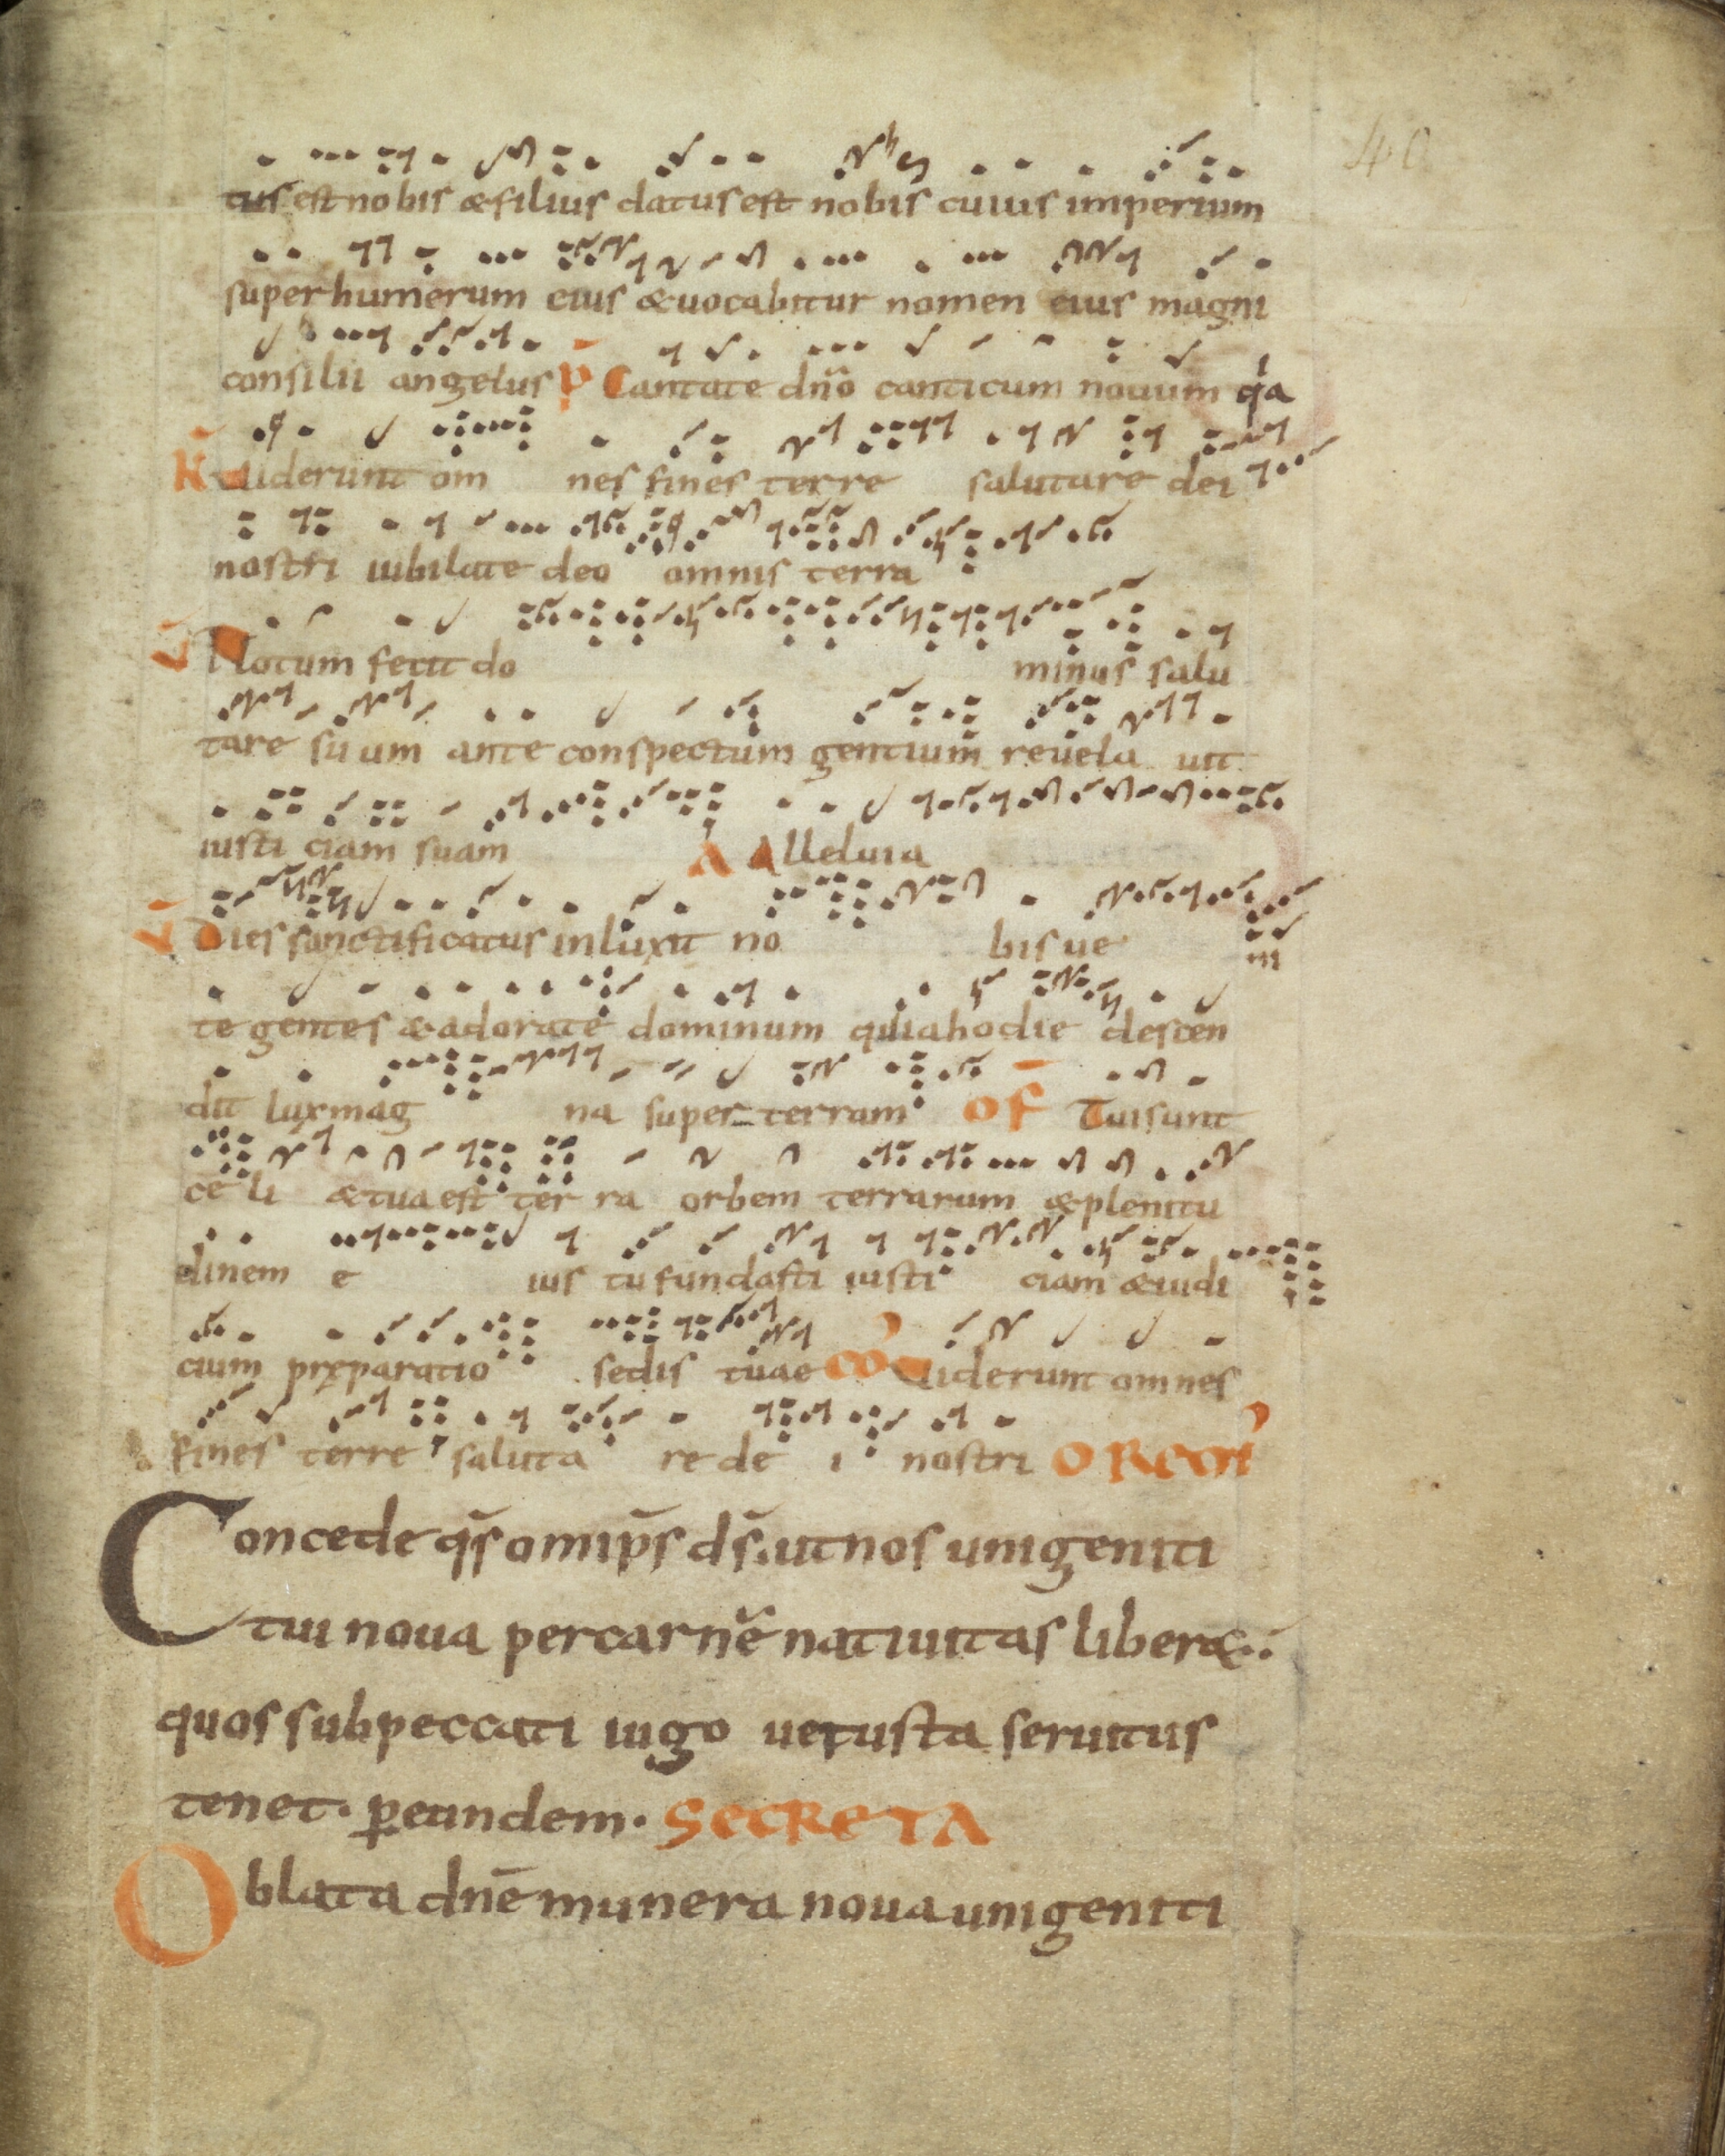 40
tus est nobis & filius datus est nobis cuius imperium
super humerum eius & uocabitur nomen eius magni
consilii angelus P̄ Cantate dn̄o canticum nouum q̇a
R̄ Uiderunt om nes fines terre salutare dei
nostri iubilate deo omnis terra
V̄ Notum fecit do minus salu
tare suum ante conspectum gentium reuela uit
iusticiam suam A Alleluia
V̄ Dies sanctificatus inluxit no bis ue ni
te gentes & adorate dominum quia hodie descen
dit lux mag na super terram OF Tui sunt
celi & tua est terra orbem terrarum & plenitu
dinem e ius tu fundasti iusticiam & iudi
cium preparatio sedis tuae CO Uiderunt omnes
fines terre saluta re de i nostri
Concede qs̄ omips̄ ds̄. ut nos unigeniti
tui noua per carnē natiuitas liber&..
quos sub peccati iugo uetusta seruitus
tenet. ꝑ eundem. SECRETA
Oblata dnē munera noua unigeniti